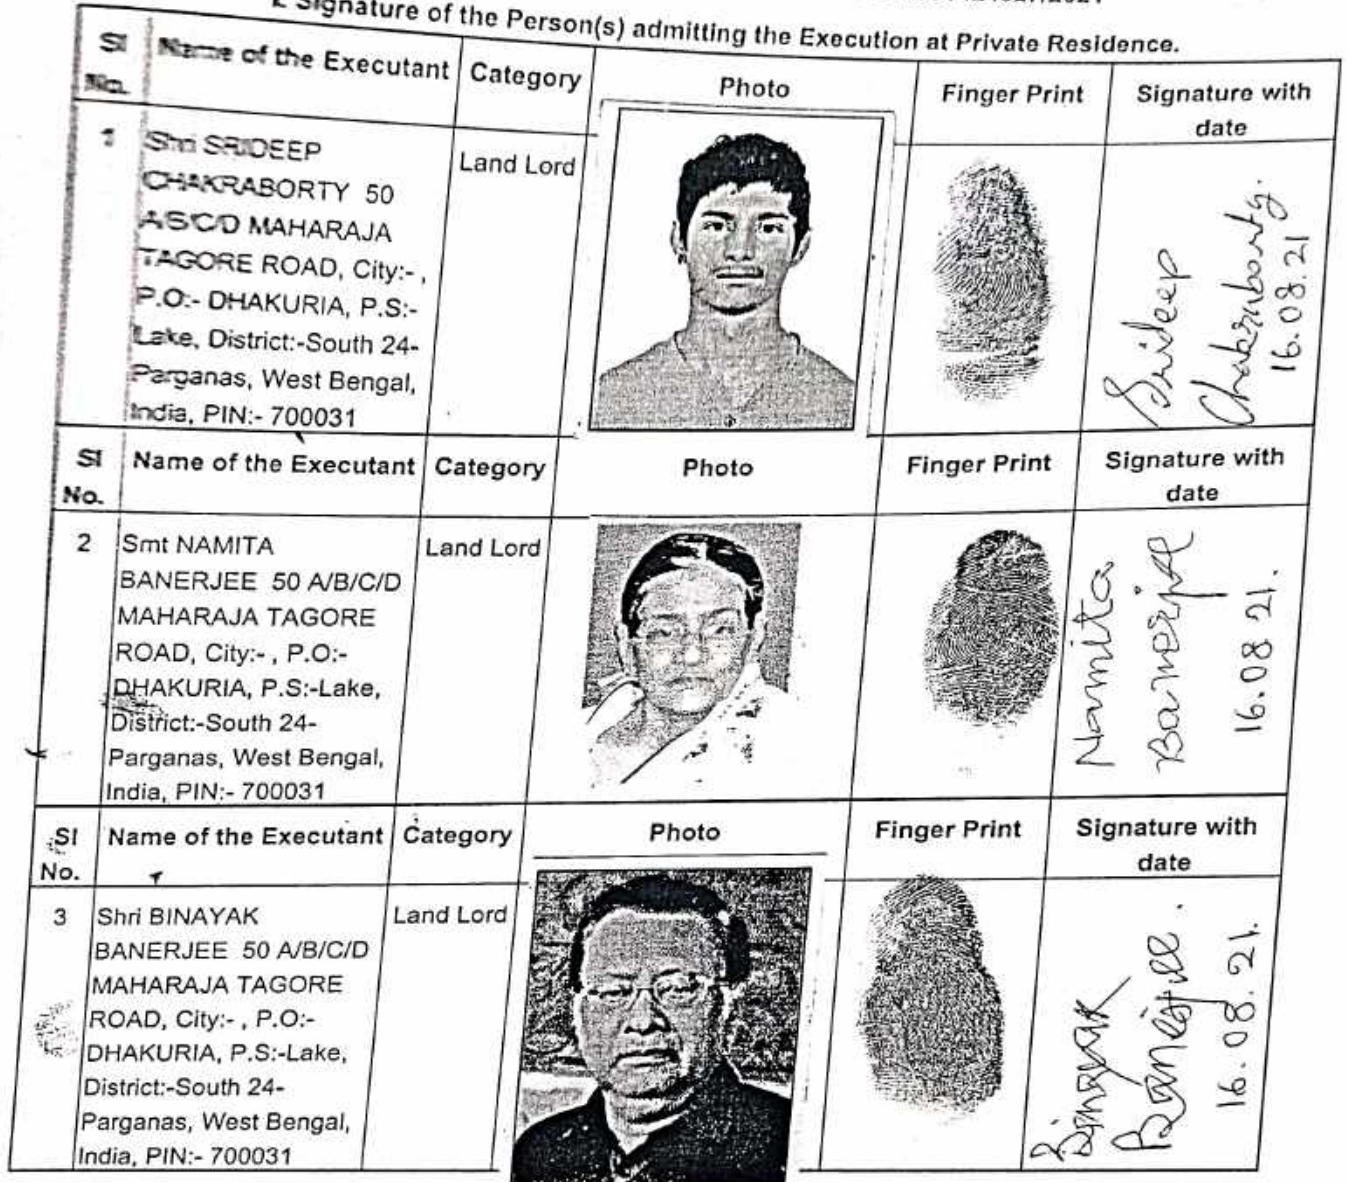 Signature of the Person(s) admitting the Execution at Private Residence.
Sl No. Name of the Executant Category Photo Finger Print Signature with date
1 Shri SRIDEEP
CHAKRABORTY 50
MAHARAJA
TAGORE ROAD, City:- ,
P.O:- DHAKURIA, P.S:-
Lake, District:-South 24-
Parganas, West Bengal,
India, PIN:- 700031
Land Lord
Srideep
Chakraborty.
16.08.21
Sl No. Name of the Executant Category Photo Finger Print Signature with date
2 Smt NAMITA
BANERJEE 50 A/B/C/D
MAHARAJA TAGORE
ROAD, City:- , P.O:-
DHAKURIA, P.S:-Lake,
District:-South 24-
Parganas, West Bengal,
India, PIN:- 700031
Land Lord
Namita
Banerjee
16.08 21.
Sl No. Name of the Executant Category Photo Finger Print Signature with date
3 Shri BINAYAK
BANERJEE 50 A/B/C/D
MAHARAJA TAGORE
ROAD, City:- , P.O:-
DHAKURIA, P.S:-Lake,
District:-South 24-
Parganas, West Bengal,
India, PIN:- 700031
Land Lord
Binayak
Banerjee.
16.08.21.